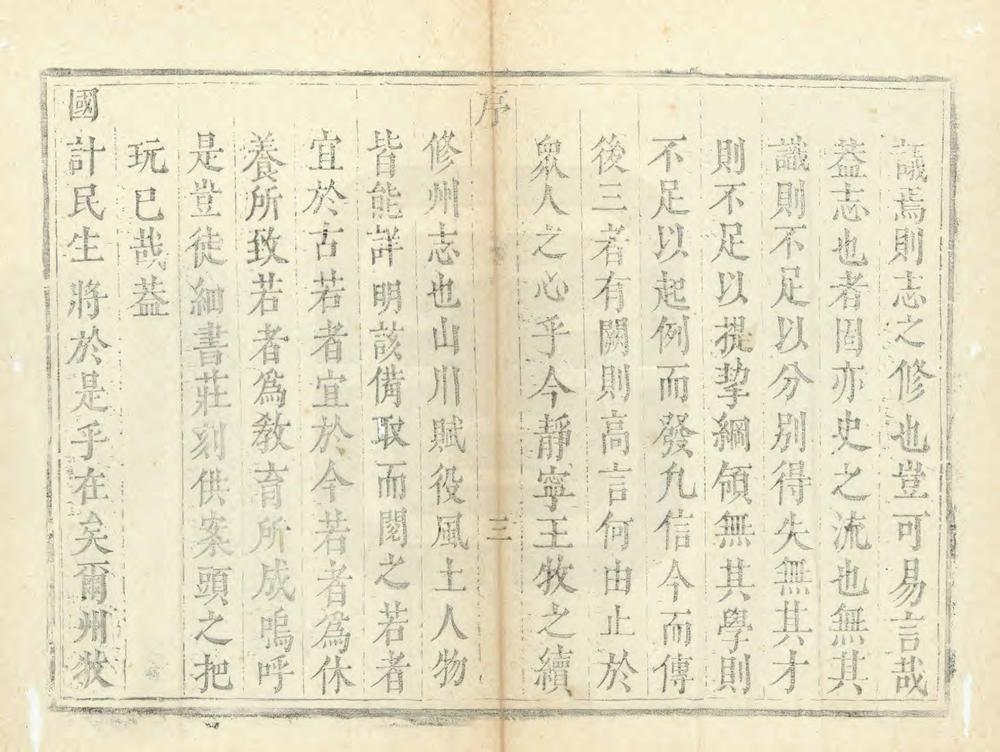 議焉則志之修也豈可易言哉
葢志也者固亦史之流也無其
識則不足以分别得失無其才
則不足以提挈綱領無其學則
不足以起例而發凡信今而傳
後三者有闕則高言何由止於
眾人之心乎今靜寧王牧之續
序
三
修州志也山川賦役風土人物
皆能詳明該備取而閱之若者
宜於古若者宜於今若者為休
養所致若者為教育所成嗚呼
是豈徒細書莊刻供案頭之把
玩已哉葢
國計民生將於是乎在矣爾州狄